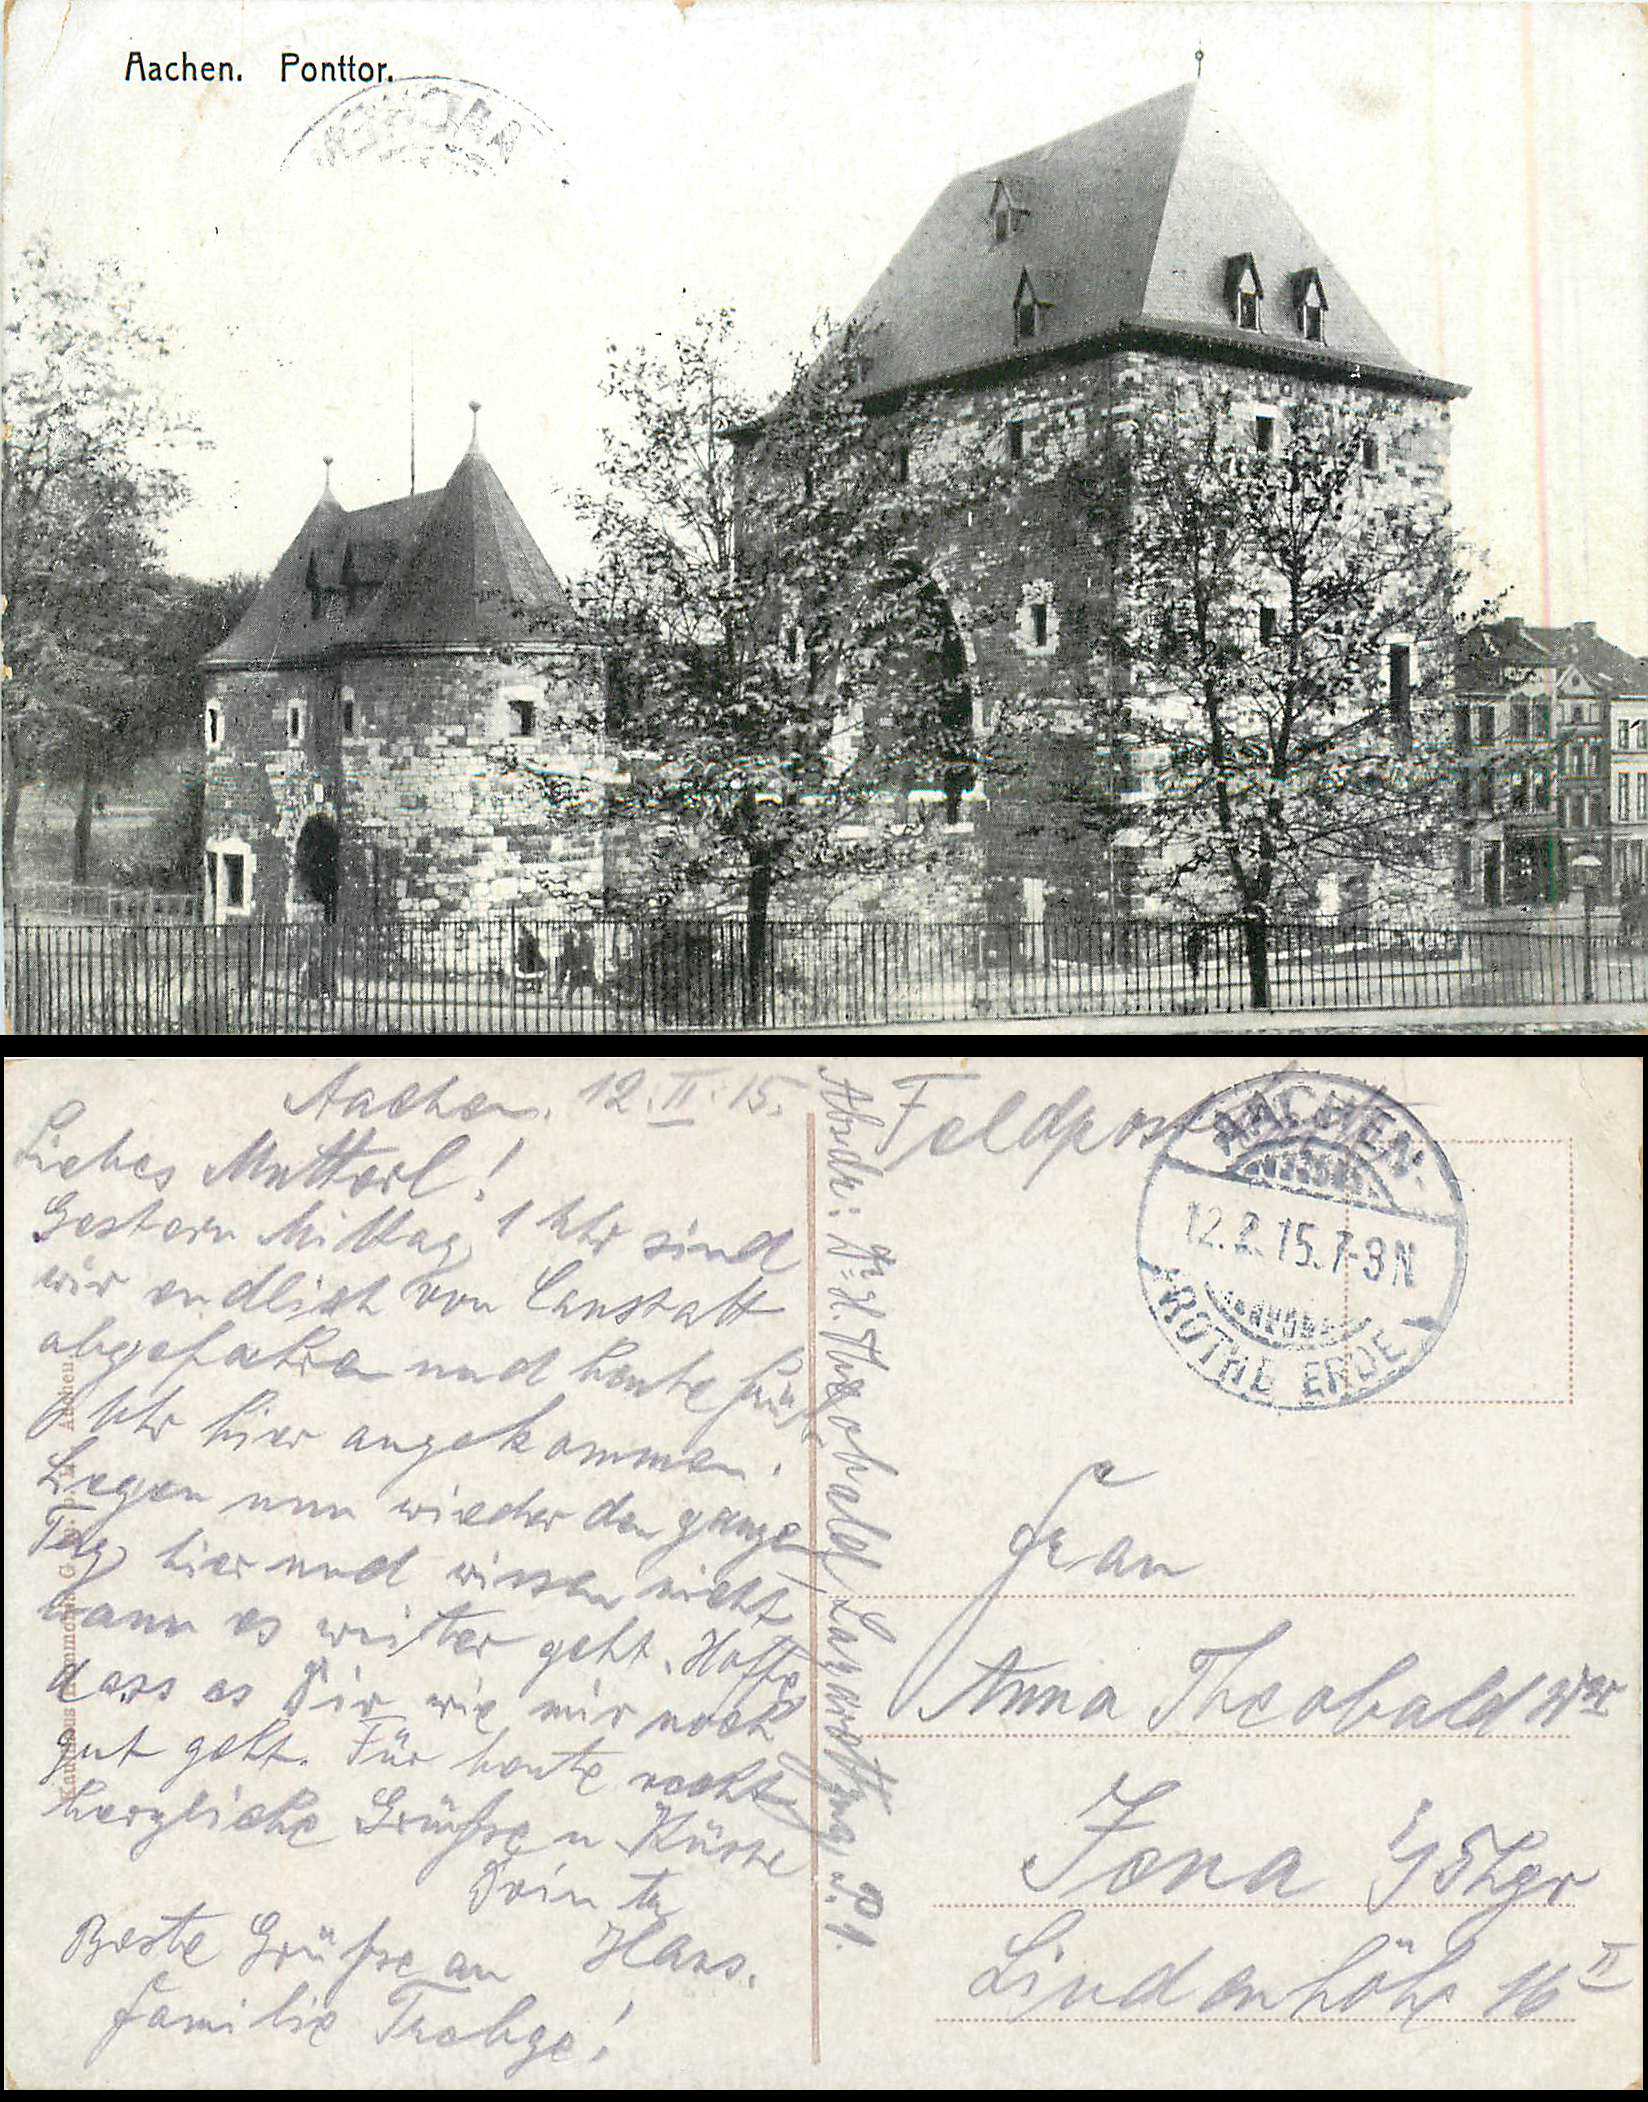 Aachen. Ponttor.
AACHEN
Aachen. 12.II.15.
Liebes Mutterl!
Gestern Mittag 1 Uhr sind
wir endlich von Canstatt
abgefahren und heute früh
Uhr hier angekommen.
Liegen nun wieder den ganzen
Tag hier und wissen nicht
wann es weiter geht. Hoffe
dass es Dir wie mir noch
gut geht. Für heute recht
herzliche Grüsse u. Küsse
Dein tr.
Hans.
Beste Grüsse an
Familie Trebge!
Kaufhaus Aachen.
Absdr: Dr. H. Theobald, Lazarettzug P.1.
Feldpost
AACHEN.
12.2.15.7-8N
ROTHE ERDE
Frau
Anna Theobald Wwe
Jena i/Thgr
Lindenhöhe 16 II